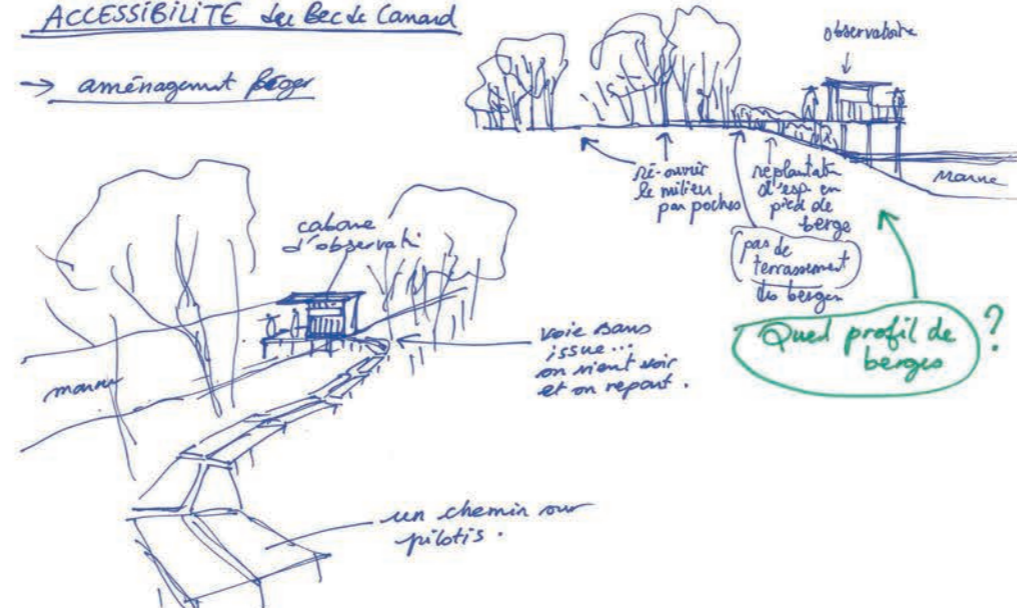 ACCESSIBILITÉ du Bec de Canard
→ aménagement léger
observatoire
ré-ouvrir
le milieu
par poches
replantation
d'esp. en
pied de
berge
Marne
pas de
terrassement
des berges
Quel profil de
berges ?
cabane
d'observati
marne
voie sans
issue...
on vient voir
et on repart.
un chemin sur
pilotis.